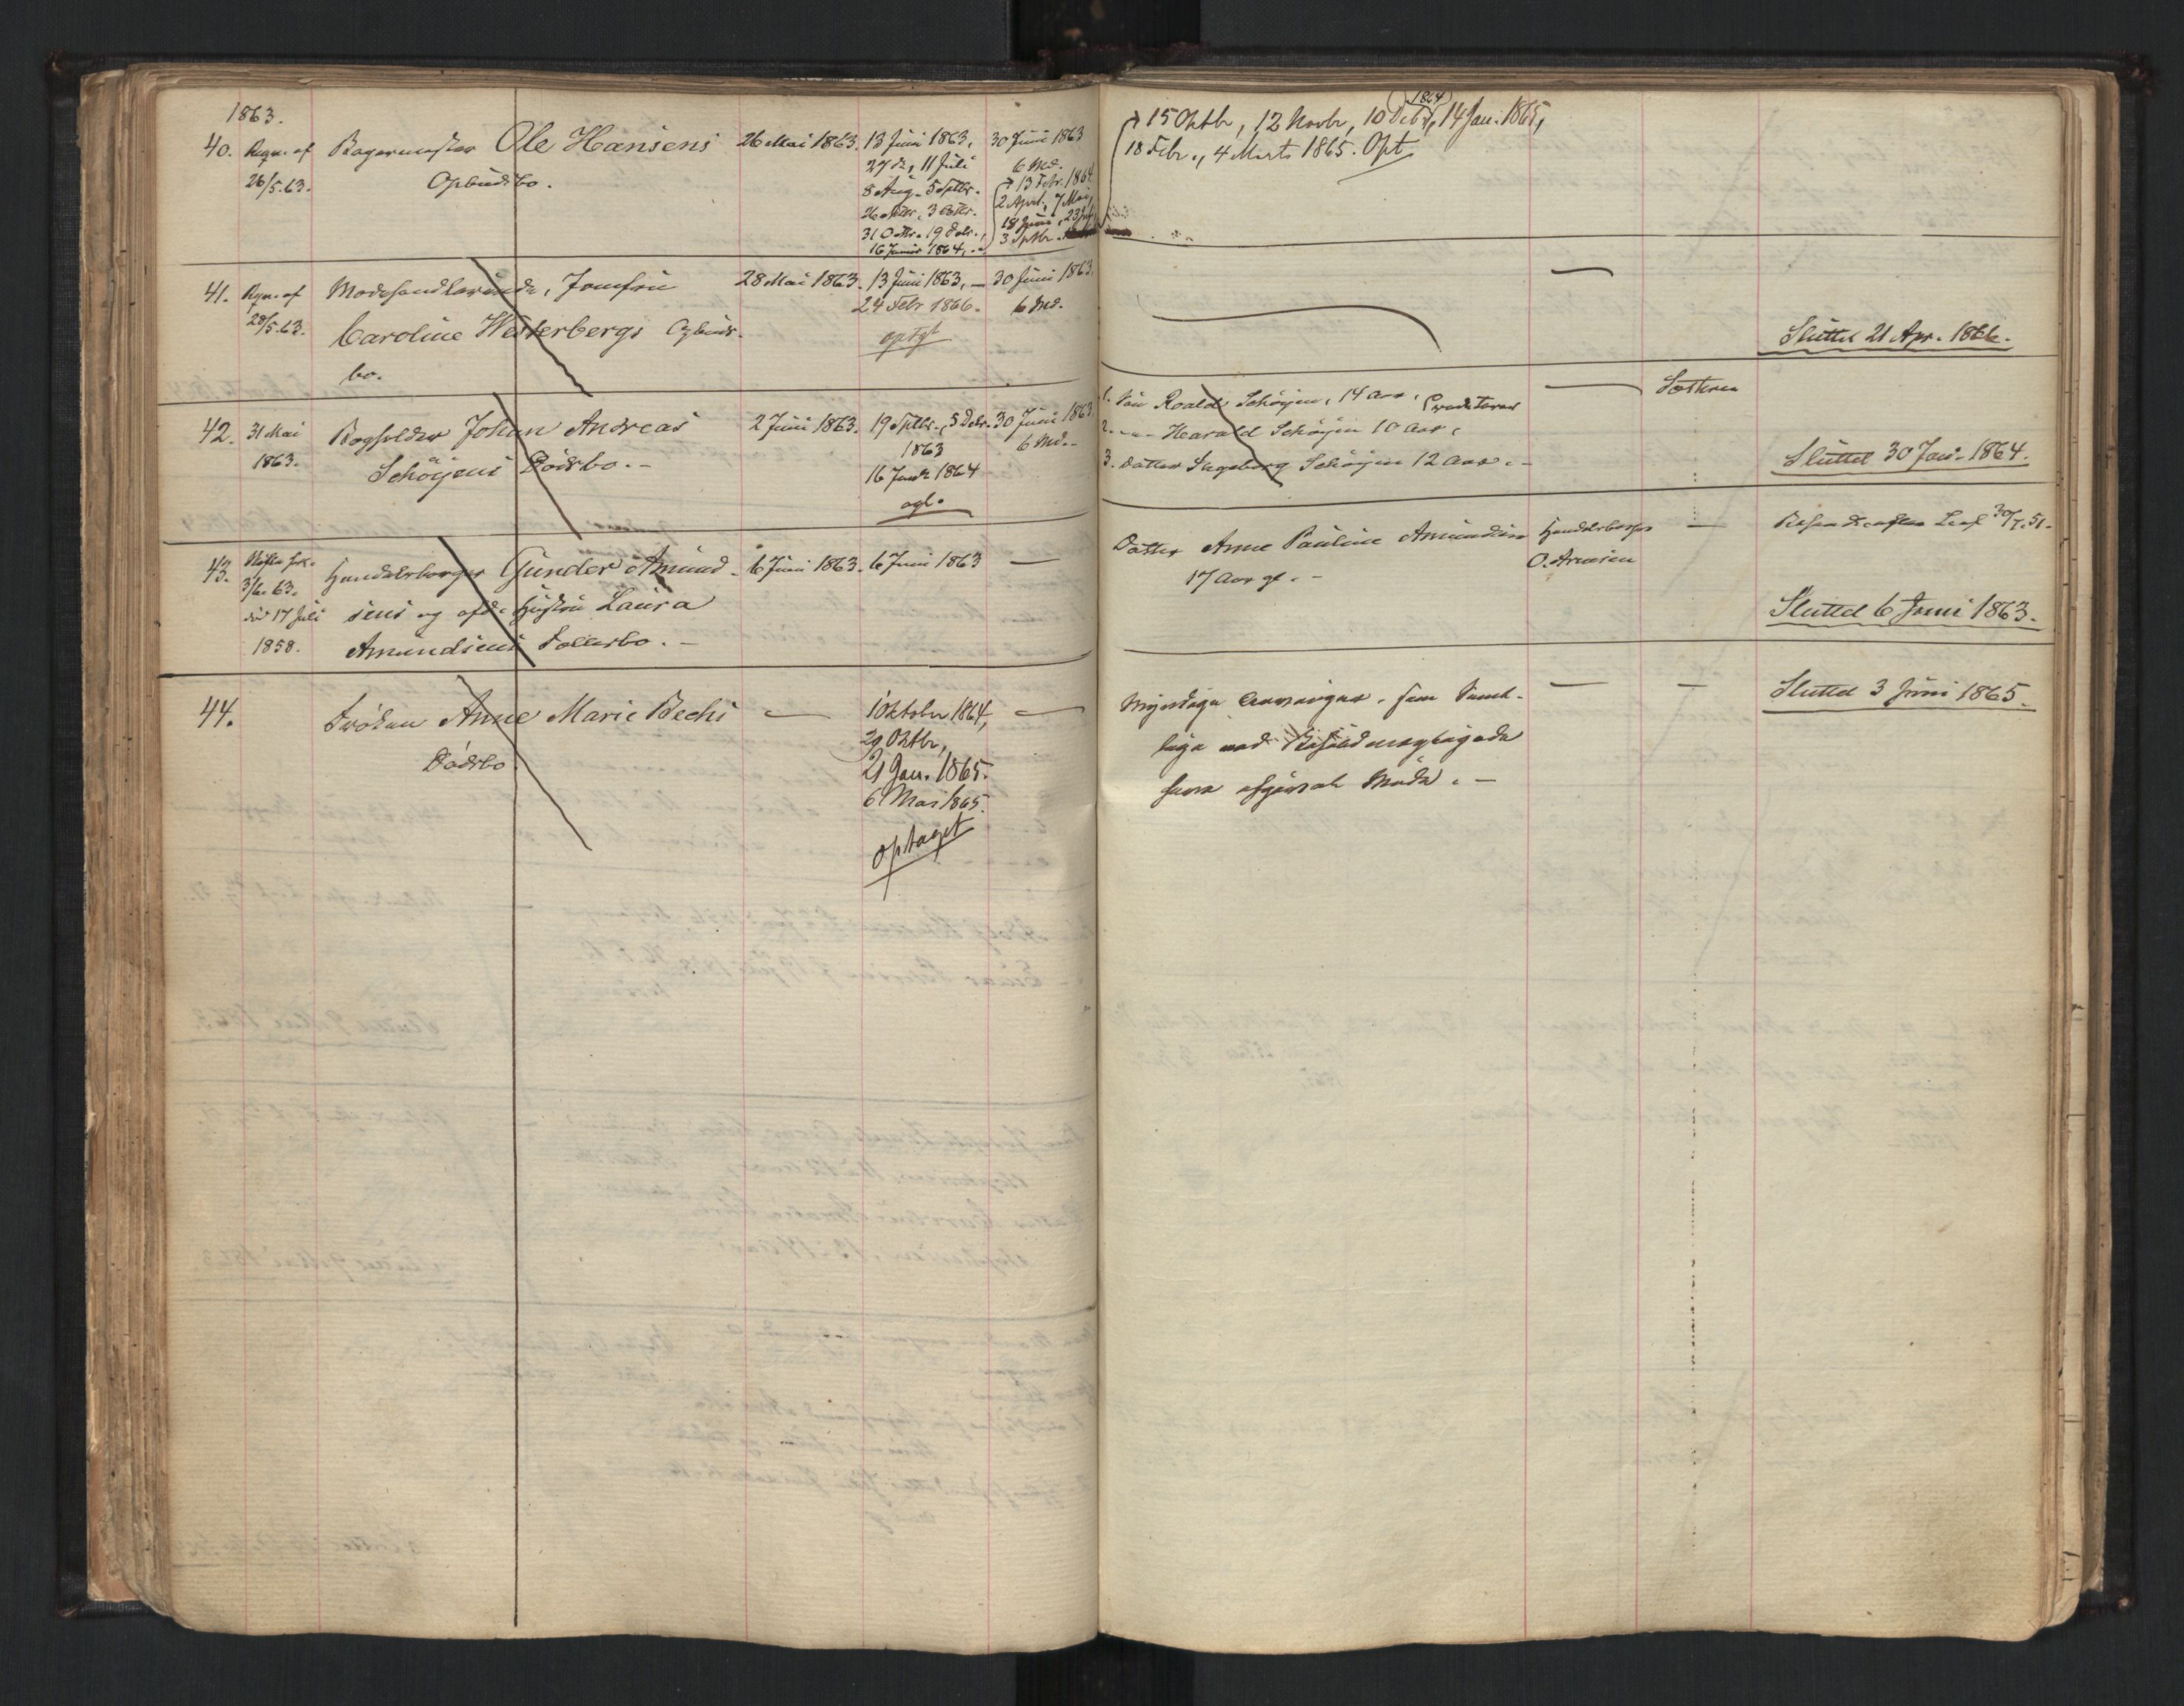 1863.
40. Rqn. af Bagermester Ole Hansens 26 Mai 1863. 13 Juni 1863, 30 Juni 1863
26/5.63. Opbudsbo. 27 d., 11 Juli 6 Md.
8 Aug. 5 Sptbr. 13 Febr. 1864
26 Sptbr., 3 Oktbr. 2 April, 7 Mai,
31 Oktbr. 19 Debr., 18 Juni, 23 Juli
16 Januar 1864, 3 Sptbr.
15 Oktbr, 12 Novbr, 10 Debr 1864, 14 Jan. 1865,
18 Febr., 4 Marts 1865. Opt
41. Rqn. af Modehandlerinde, Jomfru 28 Mai 1863. 13 Juni 1863, — 30 Juni 1863.
28/5.63. Caroline Westerbergs Opbuds- 24 Febr 1866. 6 Md.
bo. optgt
— Sluttet 21 Apr. 1866.
42. 31 Mai Bogholder Johan Andreas 2 Juni 1863. 19 Sptbr., 5 Debr. 30 Juni 1863
1863. Schöyens Dödsbo. — 1863 6 Md. -
16 Janr 1864
1. Sön Roald Schöyen, 14 Aar, — 
2. -"- Harald Schöyen 10 Aar,
3. Datter Ingeborg Schöyen 12 Aar. — Sluttet 30 Jan. 1864.
43. Handelsborger Gunder Amund- 6 Juni 1863. 6 Juni 1863 —
3/6.63. sens og afd. Hustru Laura
död 17 Juli Amundsens Fællesbo. —
1858.
Datter Anne Pauline Amundsen Handelsborger —
17 Aar gl. — O. Arnesen
Sluttet 6 Juni 1863.
44. Fröken Anne Marie Bechs — 1 Oktober 1864, —
Dödsbo. 29 Oktbr,
21 Jan. 1865.
6 Mai 1865.
optaget
Myndige Arvinger, som — — Sluttet 3 Juni 1865.